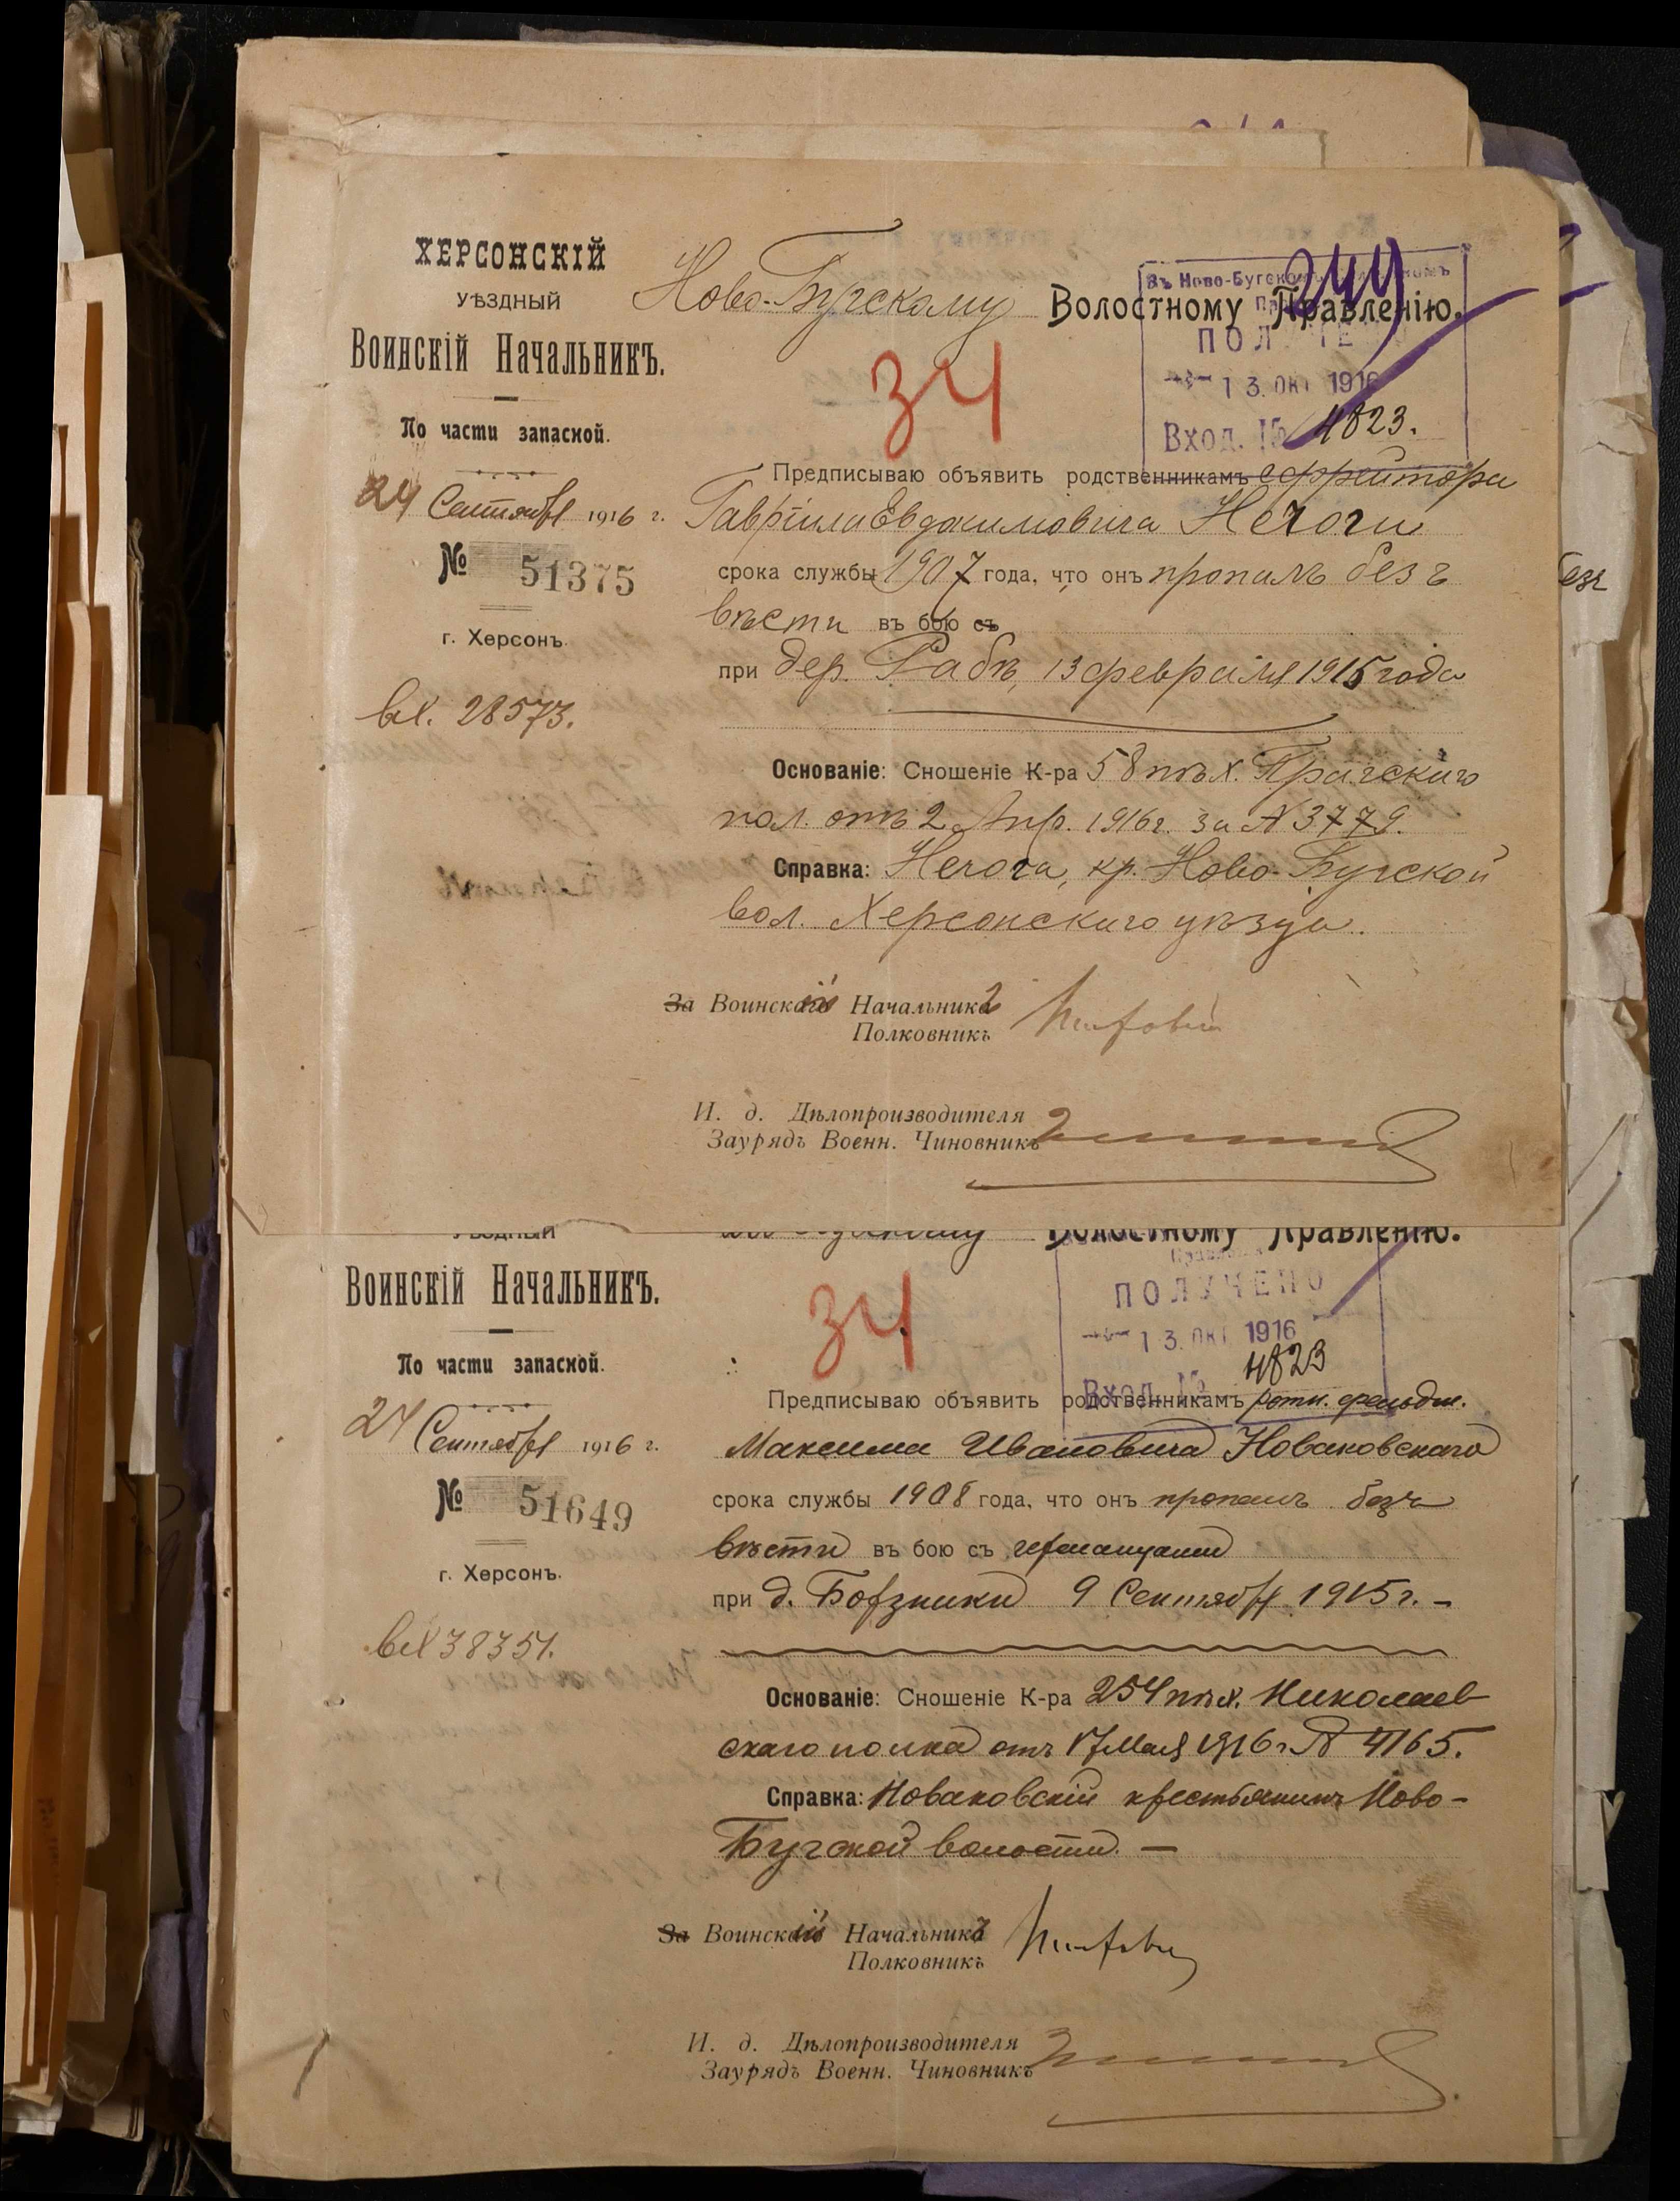 ХЕРСОНСКІЙ
УѢЗДНЫЙ
Воинскій Начальникъ.
По части запасной.
24 Сентября 1916 г.
№ 51375
г. Херсонъ.
вх. 28573.
Ново-Бугскому Волостному Правленію.
244
Въ Ново-Бугскомъ
ПОЛУЧЕ
13. ОКТ 1916
Вход. № 4823.
34
Предписываю объявить родственникамъ ефрейтора
Гавріила Евдокимовича Нечоги
срока службы 1907 года, что онъ пропалъ безъ
вѣсти въ бою съ
при дер. Рабѣ, 13 февраля 1915 года
Основаніе: Сношеніе К-ра 58 пѣх. Прагскаго
пол. отъ 2 Апр. 1916 г. за № 3779.
Справка: Нечога, кр. Ново-Бугской
вол. Херсонскаго уѣзда.
За Воинскій Начальникъ
Полковникъ
И. д. Дѣлопроизводителя
Заурядъ Военн. Чиновникъ
безъ
УѢЗДНЫЙ
Волостному Правленію.
Воинскій Начальникъ.
По части запасной.
24 Сентября 1916 г.
№ 51649
г. Херсонъ.
вх 38351.
34
ПОЛУЧЕНО
13. ОКТ 1916
Вход. № 4823
Предписываю объявить родственникамъ ротн. фельдш.
Максима Ивановича Новаковскаго
срока службы 1908 года, что онъ пропалъ безъ
вѣсти въ бою съ германцами
при д. Борзники 9 Сентября 1915 г. –
Основаніе: Сношеніе К-ра 254 пѣх. Николаев
скаго полка отъ 17 Мая 1916 г. № 4165.
Справка: Новаковскій крестьянинъ Ново-
Бугской волости. —
За Воинскій Начальникъ
Полковникъ
И. д. Дѣлопроизводителя
Заурядъ Военн. Чиновникъ